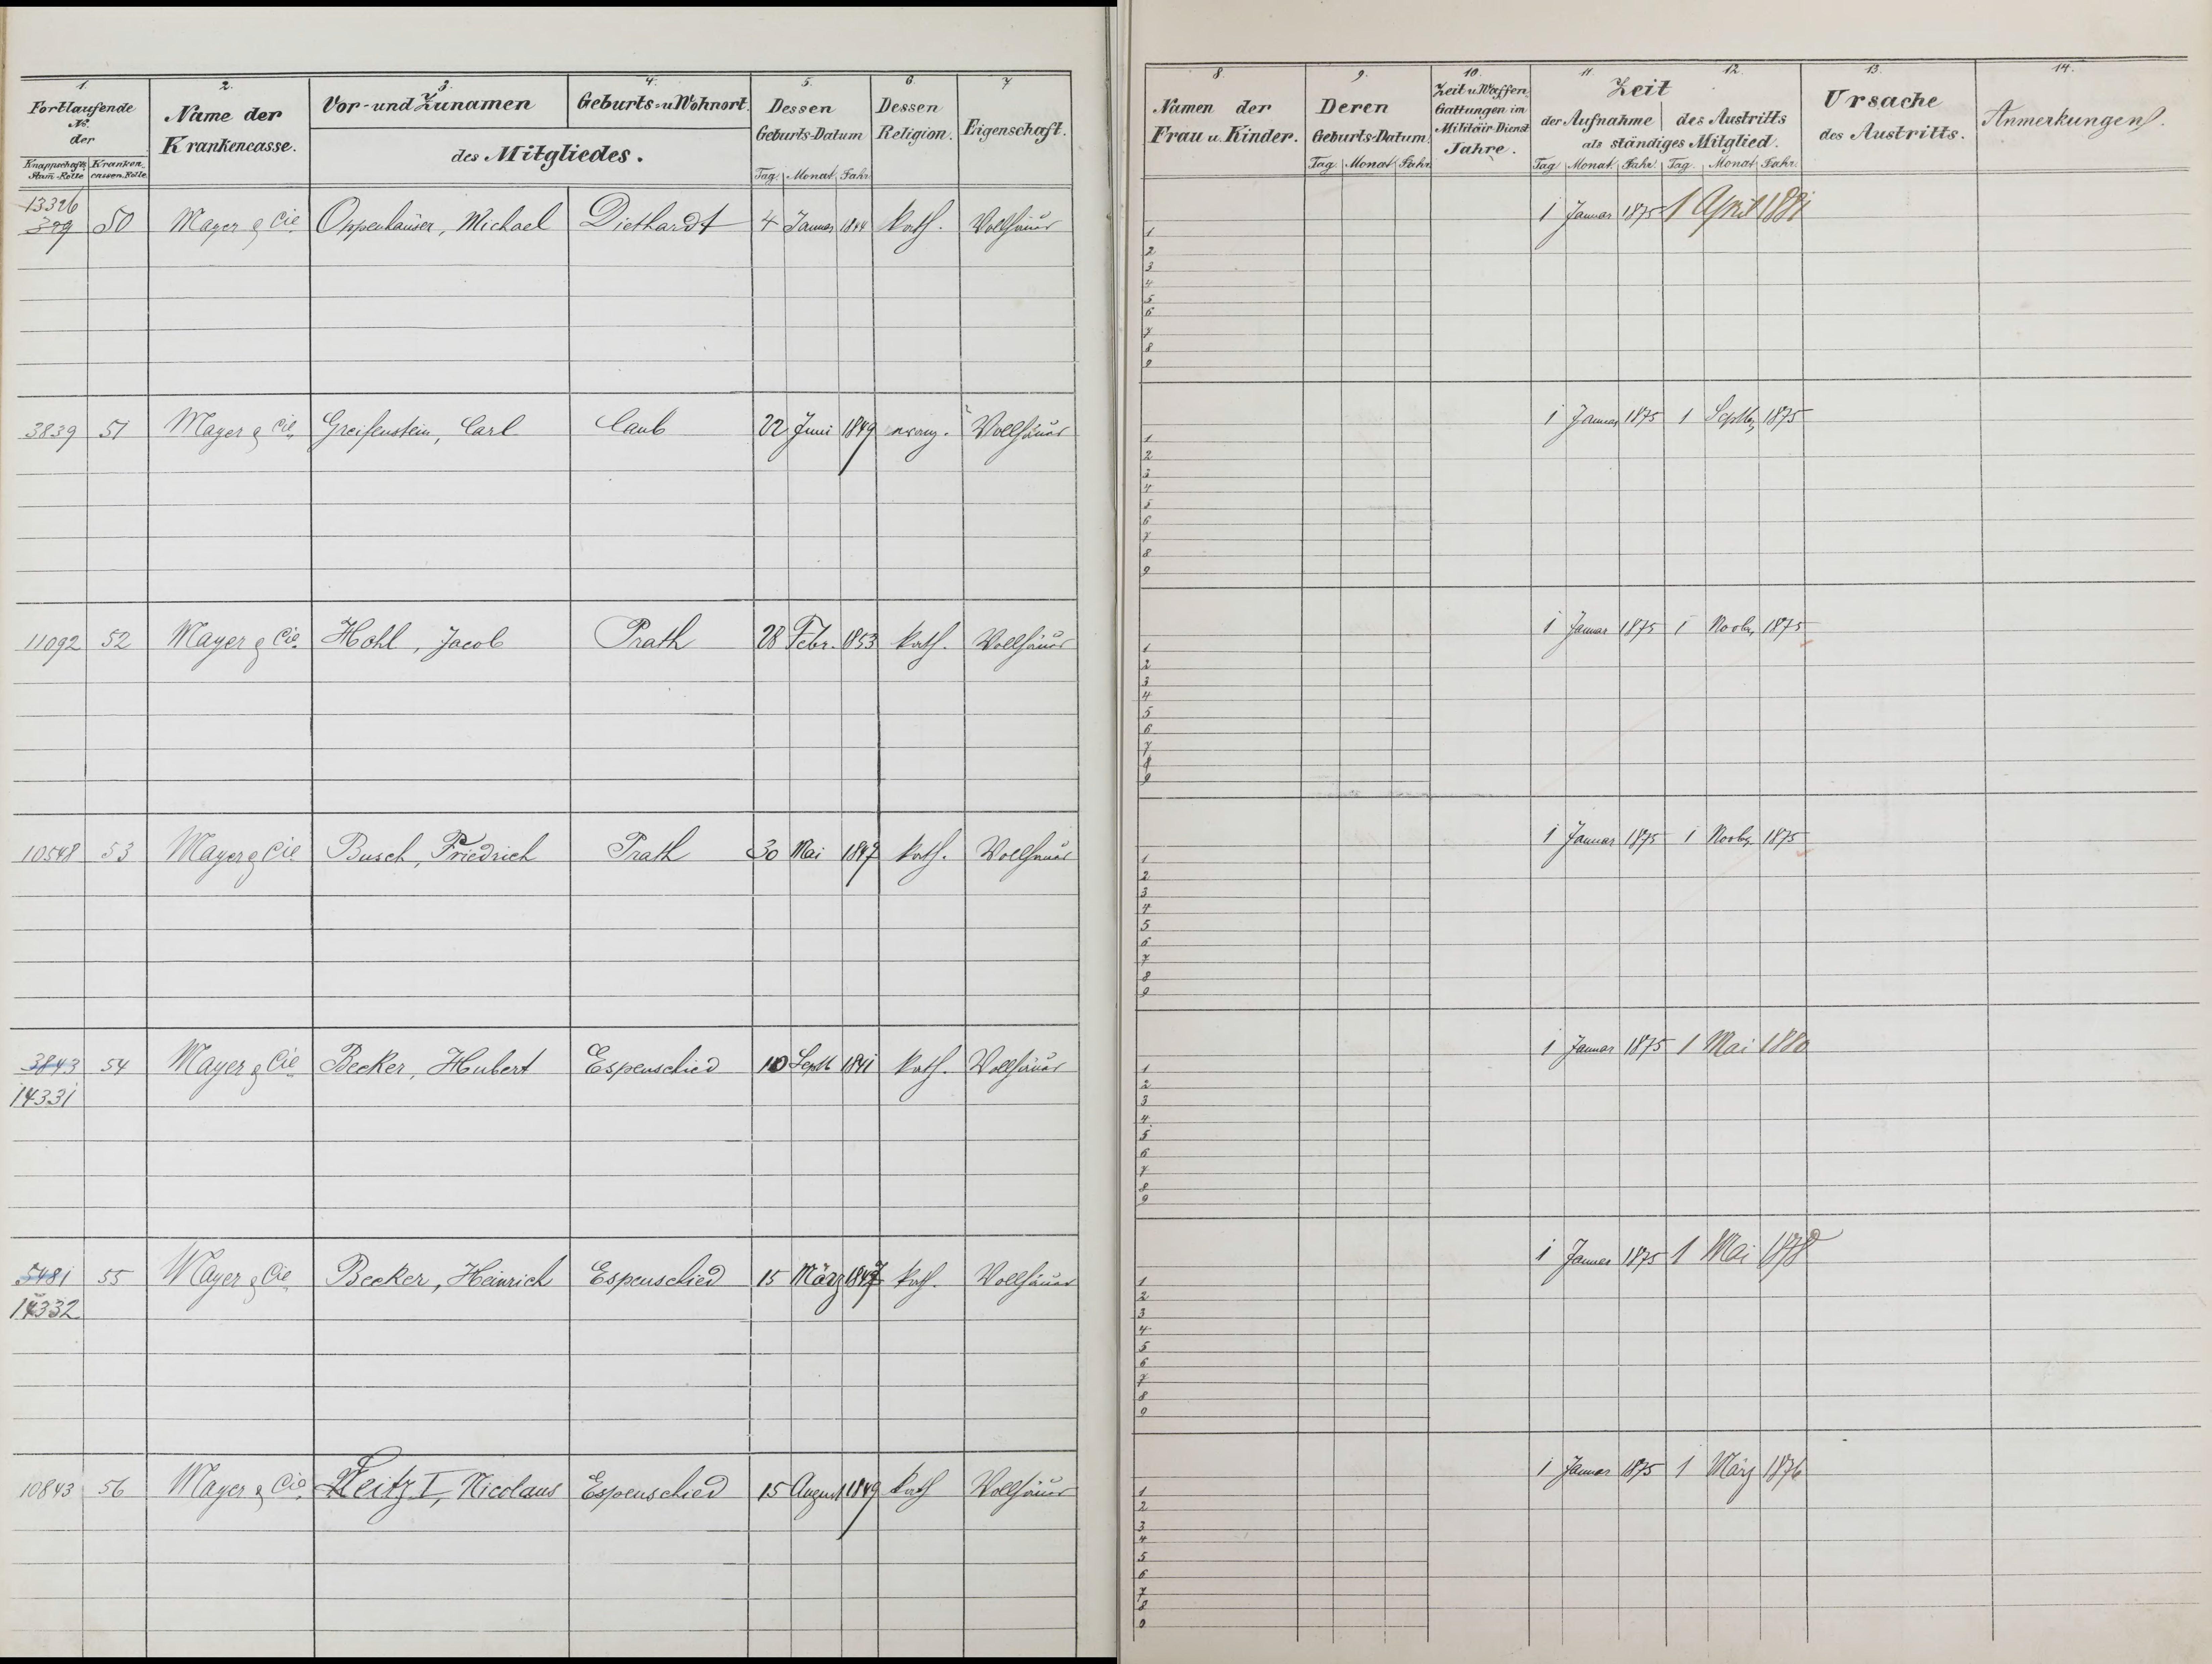 1. 2. 3. 4. 5. 6. 7
Fortlaufende No. der
Knappschafts Stam-Rolle
Kranken cassen-Rolle
Name der Krankencasse.
Vor- und Zunamen
Geburts- u Wohnort.
des Mitgliedes.
Dessen Geburts-Datum
Tag. Monat Jahr
Dessen Religion.
Eigenschaft.
13326
399 50 Mayer & Cie Oppenhäuser, Michael Diethardt 4 Januar 1844 kath. Vollhäuer
3839 51 Mayer & Cie Greifenstein, Carl Caub 22 Juni 1849 evang. Vollhäuer
11092 52 Mayer & Cie. Hohl, Jacob Prath 28 Febr. 1853 kath. Vollhäuer
10548 53 Mayer & Cie Busch, Friedrich Prath 30 Mai 1847 kath. Vollhäuer
3843 54 Mayer & Cie Becker, Hubert Espenschied 10 Septb 1841 kath. Vollhäuer
14331
5481 55 Mayer & Cie Becker, Heinrich Espenschied 15 März 1847 kath. Vollhäuer
14332
10843 56 Mayer & Cie. Weitz I, Nicolaus Espenschied 15 August 1849 kath Vollhäuer
8. 9. 10. 11. 12. 13. 14.
Namen der Frau u. Kinder.
Deren Geburts-Datum.
Tag. Monat Jahr.
Zeit u. Waffen Gattungen im Militair-Dienst Jahre.
Zeit
der Aufnahme des Austritts
als ständiges Mitglied.
Tag Monat. Jahr. Tag. Monat. Jahr.
Ursache des Austritts.
Anmerkungen.
1 Januar 1875 1 April 1881
1
2
3
4
5
6
7
8
9
1 Januar 1875 1 Septbr 1875
1
2
3
4
5
6
7
8
9
1 Januar 1875 1 Novbr. 1875
1
2
3
4
5
6
7
8
9
1 Januar 1875 1 Novbr. 1875
1
2
3
4
5
6
7
8
9
1 Januar 1875 1 Mai 1880
1
2
3
4
5
6
7
8
9
1 Januar 1875 1 Mai 1878
1
2
3
4
5
6
7
8
9
1 Januar 1875 1 März 1876
1
2
3
4
5
6
7
8
9